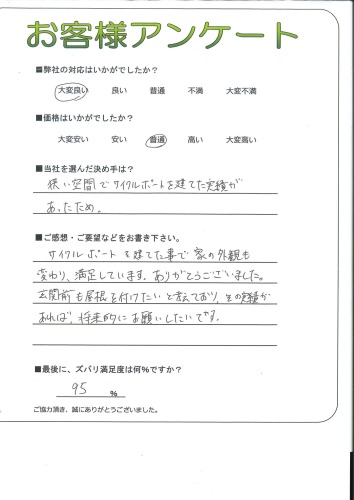 お客様アンケート
■弊社の対応はいかがでしたか？
大変良い 良い 普通 不満 大変不満
■価格はいかがでしたか？
大変安い 安い 普通 高い 大変高い
■当社を選んだ決め手は？
狭い空間でサイクルポートを建てた実績が
あったため。
■ご感想・ご要望などをお書き下さい。
サイクルポートを建てた事で家の外観も
変わり、満足しています。ありがとうございました。
玄関前も屋根を付けたいと考えており、その実績が
あれば、将来的にお願いしたいです。
■最後に、ズバリ満足度は何%ですか？
95 %
ご協力頂き、誠にありがとうございました。